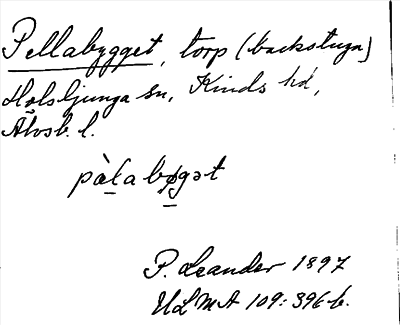 Pellabygget, torp (backstuga)
Holsljunga sn, Kinds hd,
Älvsb. l.
pàlabøgət
P. Leander 1897
ULMA 109:396 b.